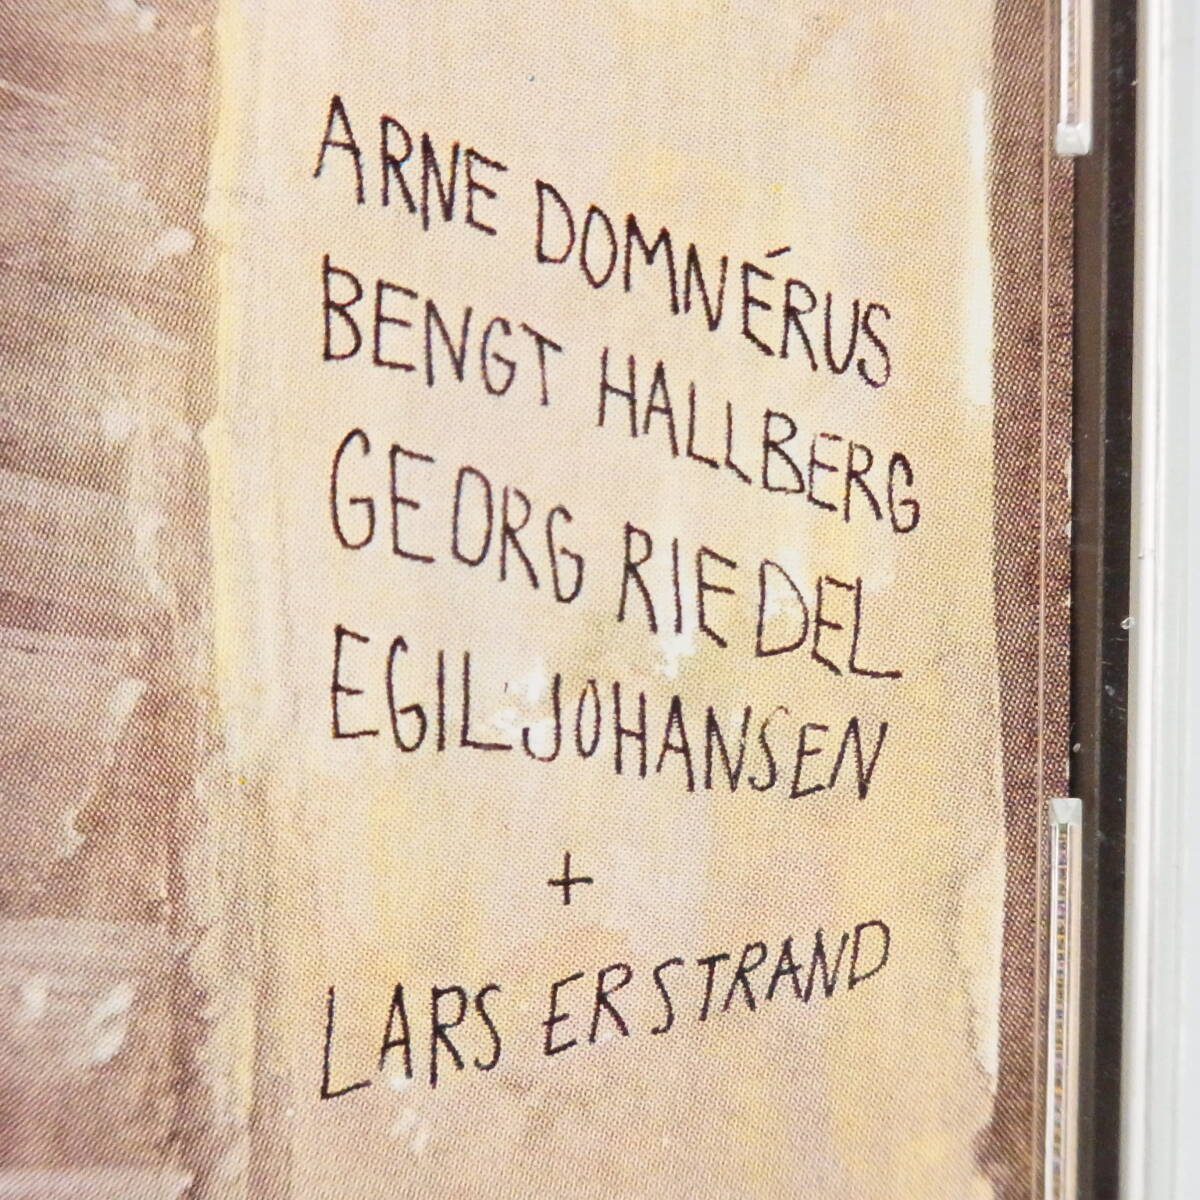 ARNE DOMNÉRUS
BENGT HALLBERG
GEORG RIEDEL
EGIL JOHANSEN
+
LARS ERSTRAND